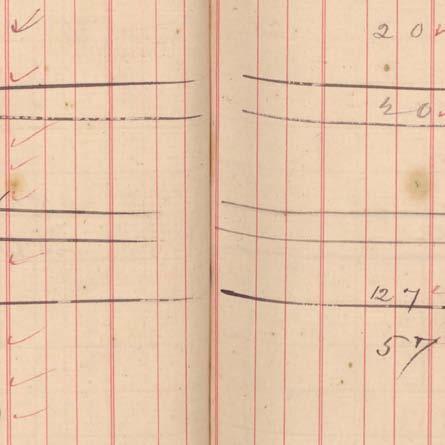 20
20
127
57